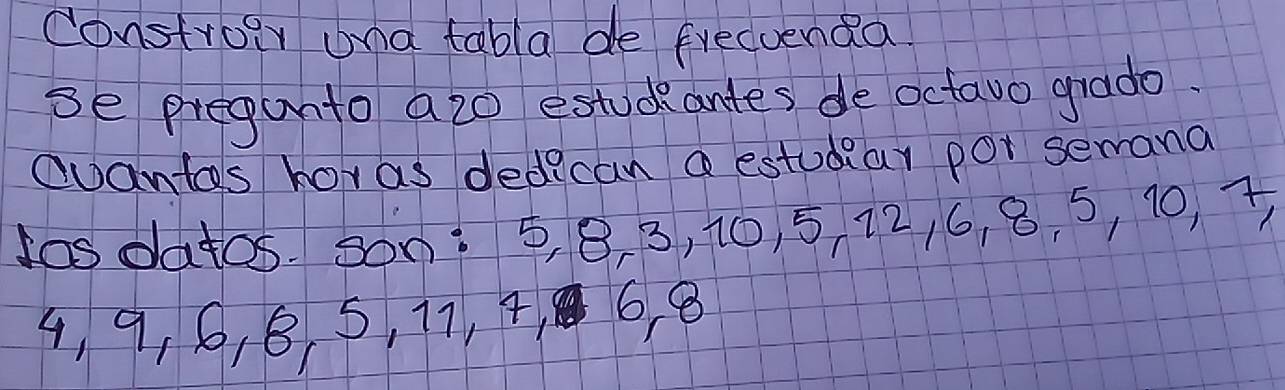 Construir una tabla de frecuencia.
Se pregunto a 20 estudiantes de octavo grado.
Cuantas horas dedican a estudiar por semana
los datos. son: 5, 8, 3, 10, 5, 12, 6, 8, 5, 10, 7,
4, 9, 6, 8, 5, 11, 7, 6, 8